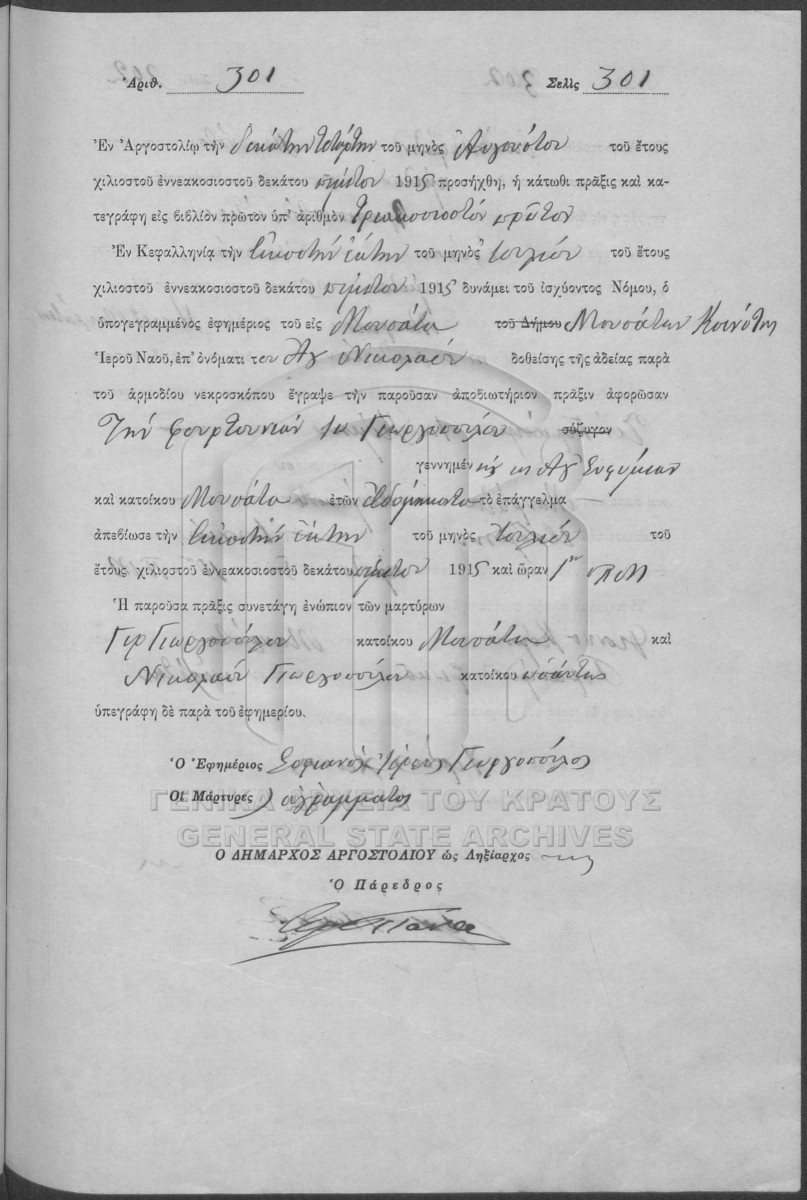 Ἀριθ. 301 Σελὶς 301
Ἐν Ἀργοστολίῳ τὴν δεκάτην τετάρτην τοῦ μηνὸς Αὐγούστου τοῦ ἔτους
χιλιοστοῦ ἐννεακοσιοστοῦ δεκάτου πέμπτου 1915 προσήχθη, ἡ κάτωθι πρᾶξις καὶ κα-
τεγράφη εἰς βιβλίον πρῶτον ὑπ' ἀριθμὸν τριακοσιοστόν πρῶτον
Ἐν Κεφαλληνίᾳ τὴν Εἰκοστήν ἕκτην τοῦ μηνὸς Ἰουλίου τοῦ ἔτους
χιλιοστοῦ ἐννεακοσιοστοῦ δεκάτου πέμπτου 1915 δυνάμει τοῦ ἰσχύοντος Νόμου, ὁ
ὑπογεγραμμένος ἐφημέριος τοῦ εἰς Μουσάτα τοῦ Δήμου Μουσάτων Κοινότης
Ἱεροῦ Ναοῦ, ἐπ' ὀνόματι του Αγ Νικολαου δοθείσης τῆς ἀδείας παρὰ
τοῦ ἁρμοδίου νεκροσκόπου ἔγραψε τὴν παροῦσαν ἀποβιωτήριον πρᾶξιν ἀφορῶσαν
Την Φουρτουνιαν Γεωργοπούλου σύζυγον
γεννημένην εις Αγ Ευφυμιαν
καὶ κατοίκου Μουσάτα ἐτῶν εβδομηκοντα τὸ ἐπάγγελμα
ἀπεβίωσε τὴν Εἰκοστήν ἕκτην τοῦ μηνὸς Ἰουλίου τοῦ
ἔτους χιλιοστοῦ ἐννεακοσιοστοῦ δεκάτου πέμπτου 1915 καὶ ὥραν 1ην π.μ
Ἡ παροῦσα πρᾶξις συνετάγη ἐνώπιον τῶν μαρτύρων
Γερ Γεωργοπούλου κατοίκου Μουσάτα καὶ
Νικολαου Γεωργοπούλου κατοίκου ωσαύτως
ὑπεγράφη δὲ παρὰ τοῦ ἐφημερίου.
Ὁ Ἐφημέριος Σοφιανος Ἱερεύς Γεωργοπούλος
Οἱ Μάρτυρες ) αγράμματοι
ΓΕΝΙΚΑ ΑΡΧΕΙΑ ΤΟΥ ΚΡΑΤΟΥΣ
GENERAL STATE ARCHIVES
Ο ΔΗΜΑΡΧΟΣ ΑΡΓΟΣΤΟΛΙΟΥ ὡς Ληξίαρχος
Ὁ Πάρεδρος